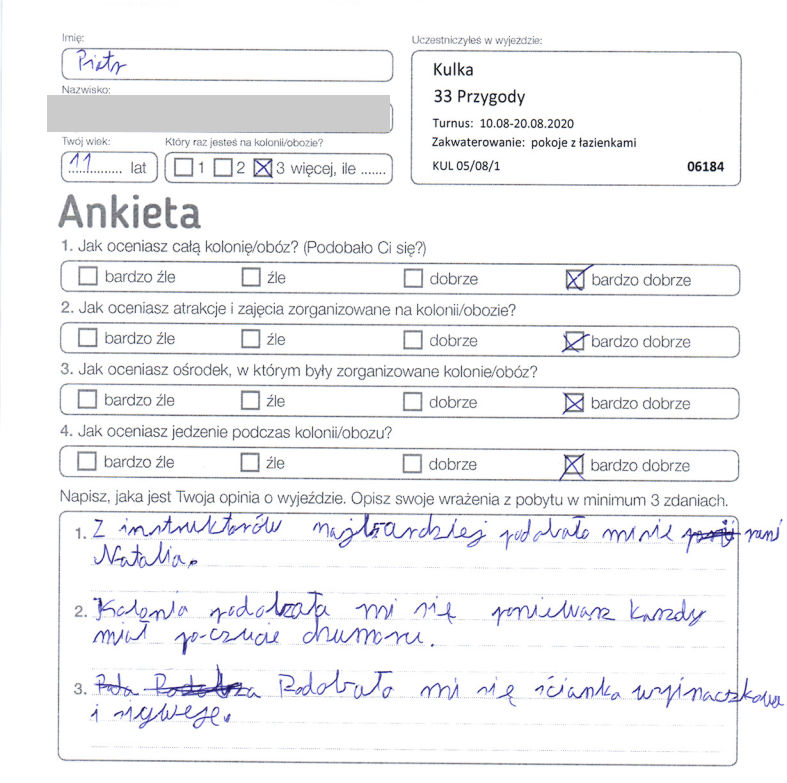 Imię:
Piotr
Nazwisko:
Twój wiek:
11 lat
Który raz jesteś na kolonii/obozie?
1 2 3 więcej, ile .......
Uczestniczyłeś w wyjeździe:
Kulka
33 Przygody
Turnus: 10.08-20.08.2020
Zakwaterowanie: pokoje z łazienkami
KUL 05/08/1 06184
Ankieta
1. Jak oceniasz całą kolonię/obóz? (Podobało Ci się?)
bardzo źle źle dobrze bardzo dobrze
2. Jak oceniasz atrakcje i zajęcia zorganizowane na kolonii/obozie?
bardzo źle źle dobrze bardzo dobrze
3. Jak oceniasz ośrodek, w którym były zorganizowane kolonie/obóz?
bardzo źle źle dobrze bardzo dobrze
4. Jak oceniasz jedzenie podczas kolonii/obozu?
bardzo źle źle dobrze bardzo dobrze
Napisz, jaka jest Twoja opinia o wyjeździe. Opisz swoje wrażenia z pobytu w minimum 3 zdaniach.
1. Z instruktorów najbardziej podobało mi sie pani
Natalia.
2. Kolonia podobała mi się poniewarz karzdy
miał poczucie chumoru.
3. Podobało mi się ścianka wspinaczkowa
i sigweje.